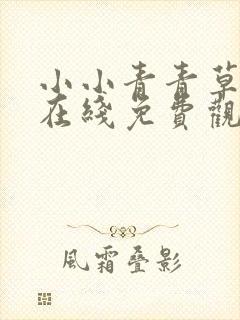 小小青青草
在綫免費觀
風霜叠影